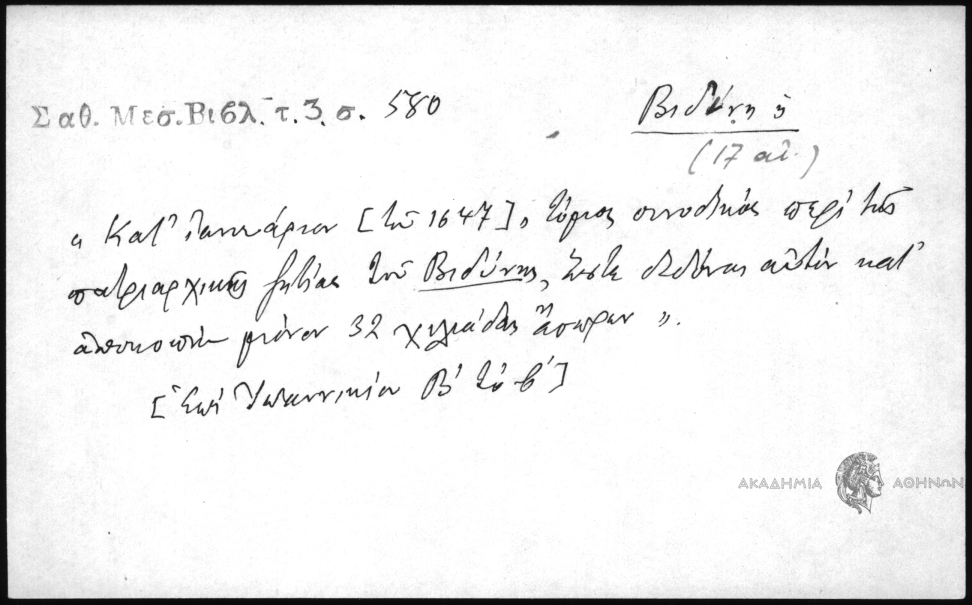 Σαθ. Μεσ. Βιβλ. τ. 3. σ. 580
Βιδύνη ἡ
(17 αἰ.)
« Κατ' Ἰαννουάριον [τοῦ 1647], τόμος συνοδικὸς περὶ τῆς
πατριαρχικῆς ζητείας τοῦ Βιδύνης, ὥστε διδόναι αὐτὸν κατ'
ἀποκοπὴν μόνον 32 χιλιάδας ἄσπρων ».
[Ἐπὶ Ἰωαννικίου Β' τὸ β']
ΑΚΑΔΗΜΙΑ ΑΘΗΝΩΝ